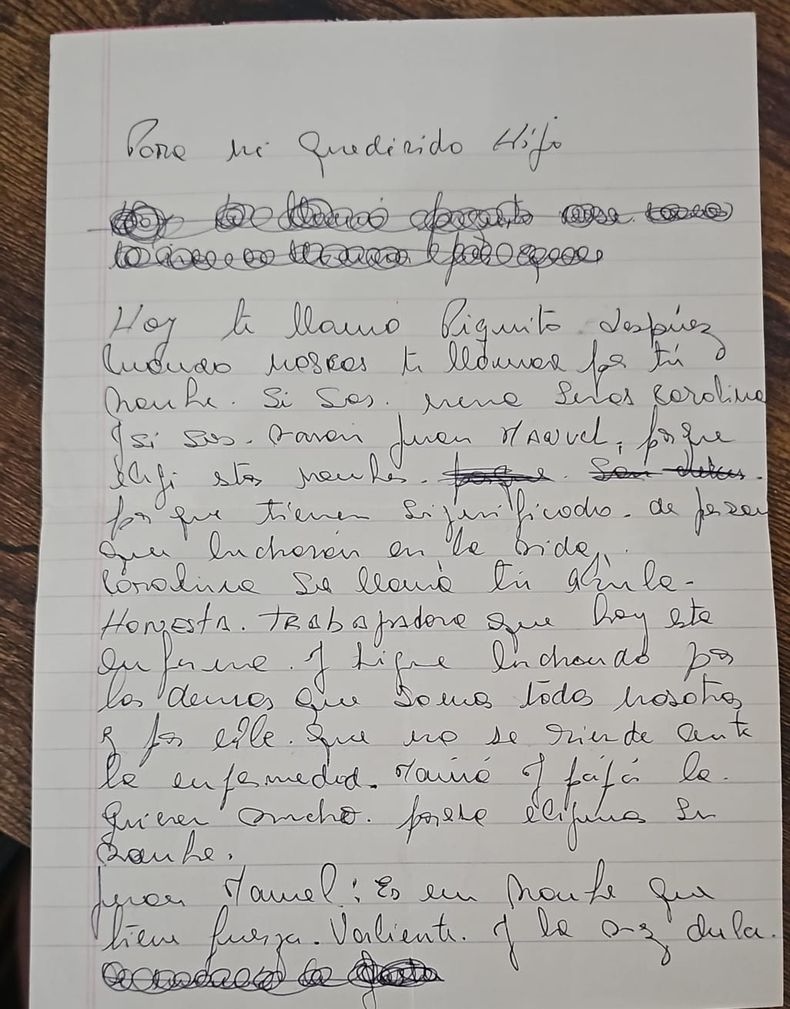 Para mi quedirido Hijo
Hoy te llamo Piquito despúez
cuando nascas te llamare por tú
nombre. Si sos. nena seras Carolina
y si sos. varon Juan Manuel, porque
elegi estos nombres.
por que tienen significado. de
que lucharon en la vida,.
Carolina se llama tú abuela-
Honesta. TRabajadora que hoy esta
enferma. y sigue luchando por
los demas que somos todos nosotros
y por ella. que no se rinde ante
la enfermedad. Mamá y papá la.
quieren mucho. elijimos su
nombre.
Juan Manuel: Es un nombre que
tiene fuerza. Valiente. y la vez dulce.